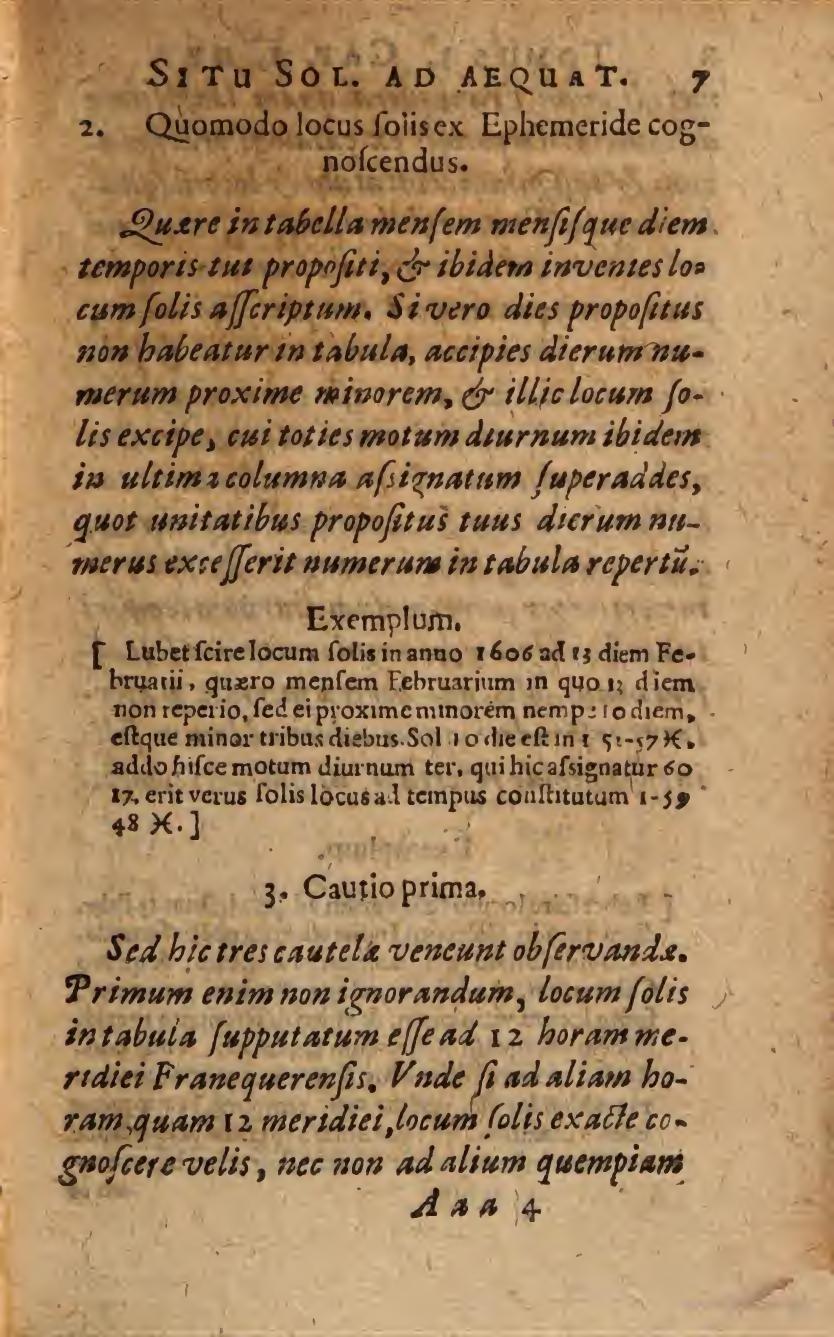 SITU SOL. AD AEQUAT. 7
2. Quomodo locus ſolis ex Ephemeride cog-
noſcendus.
Quære in tabella menſem menſiſque diem
temporis tui propoſiti, & ibidem invenies lo-
cum ſolis aſſcriptum. Si vero dies propoſitus
non habeatur in tabula, accipies dierum nu-
merum proxime minorem, & illic locum ſo-
lis excipe, cui toties motum diurnum ibidem
in ultima columna aſsignatum ſuperaddes,
quot unitatibus propoſitus tuus dierum nu-
merus exceſſerit numerum in tabula repertū.
Exemplum.
[ Lubet ſcire locum ſolis in anno 1606 ad 13 diem Fe-
bruarii, quæro menſem Februarium in quo 13 diem
non reperio, ſed ei proxime minorem nempe 10 diem,
eſtque minor tribus diebus. Sol 10 die eſt in 1 51-57 ♓.
addo hiſce motum diurnum ter, qui hic aſsignatur 60
17. erit verus ſolis locus ad tempus conſtitutum 1-59
48 ♓. ]
3. Cautio prima.
Sed hic tres cautelæ veneunt obſervandæ.
Primum enim non ignorandum, locum ſolis
in tabula ſupputatum eſſe ad 12 horam me-
ridiei Franequerenſis. Vnde ſi ad aliam ho-
ram, quam 12 meridiei, locum ſolis exacte co-
gnoſcere velis, nec non ad alium quempiam
Aaa 4